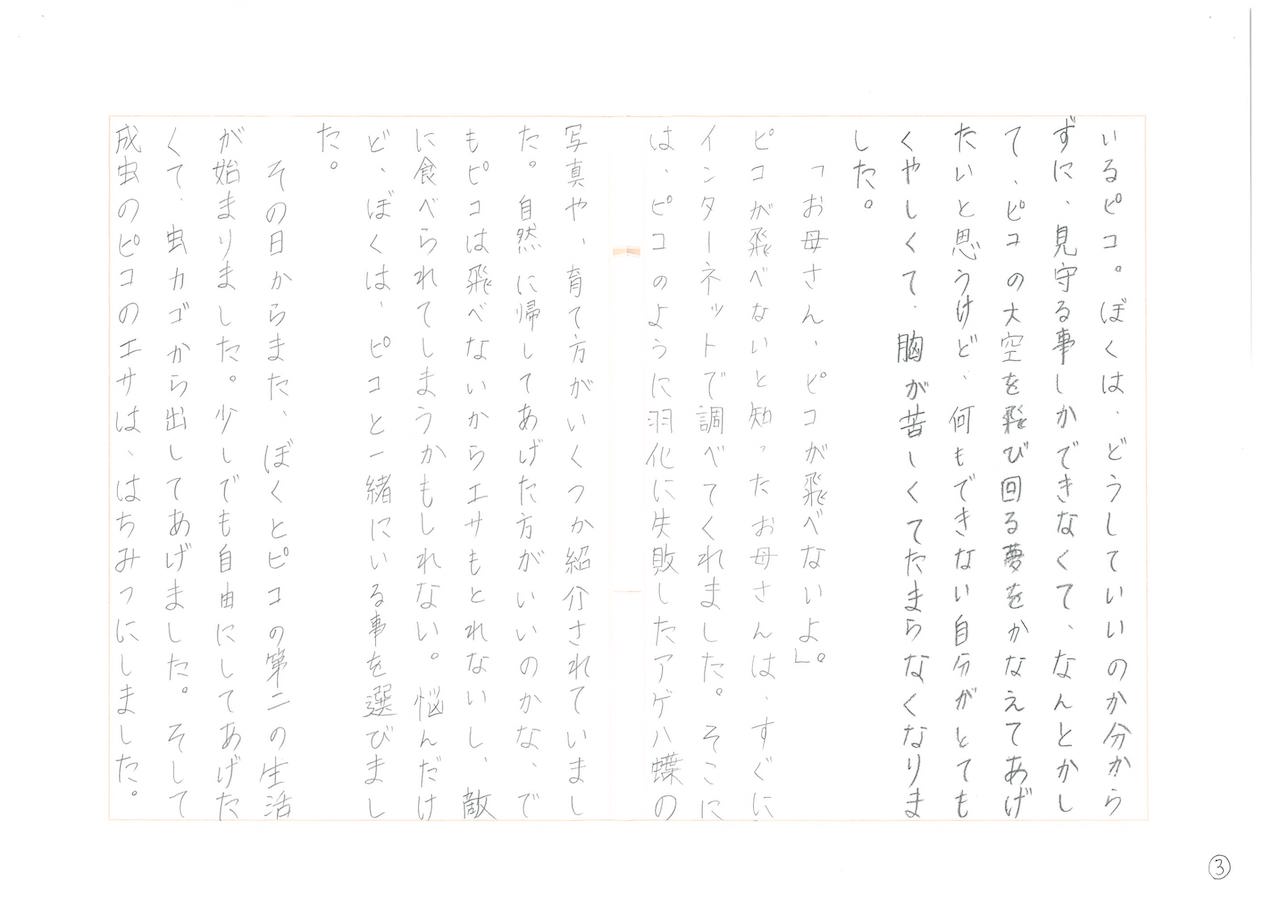 いるピコ。ぼくは、どうしていいのか分から
ずに、見守る事しかできなくて、なんとかし
て、ピコの大空を飛び回る夢をかなえてあげ
たいと思うけど、何もできない自分がとても
くやしくて、胸が苦しくてたまらなくなりま
した。
「お母さん、ピコが飛べないよ」。
ピコが飛べないと知ったお母さんは、すぐに
インターネットで調べてくれました。そこに
は、ピコのように羽化に失敗したアゲハ蝶の
写真や、育て方がいくつか紹介されていまし
た。自然に帰してあげた方がいいのかな、で
もピコは飛べないからエサもとれないし、敵
に食べられてしまうかもしれない。悩んだけ
ど、ぼくは、ピコと一緒にいる事を選びまし
た。
その日からまた、ぼくとピコの第二の生活
が始まりました。少しでも自由にしてあげた
くて、虫カゴから出してあげました。そして
成虫のピコのエサは、はちみつにしました。
③